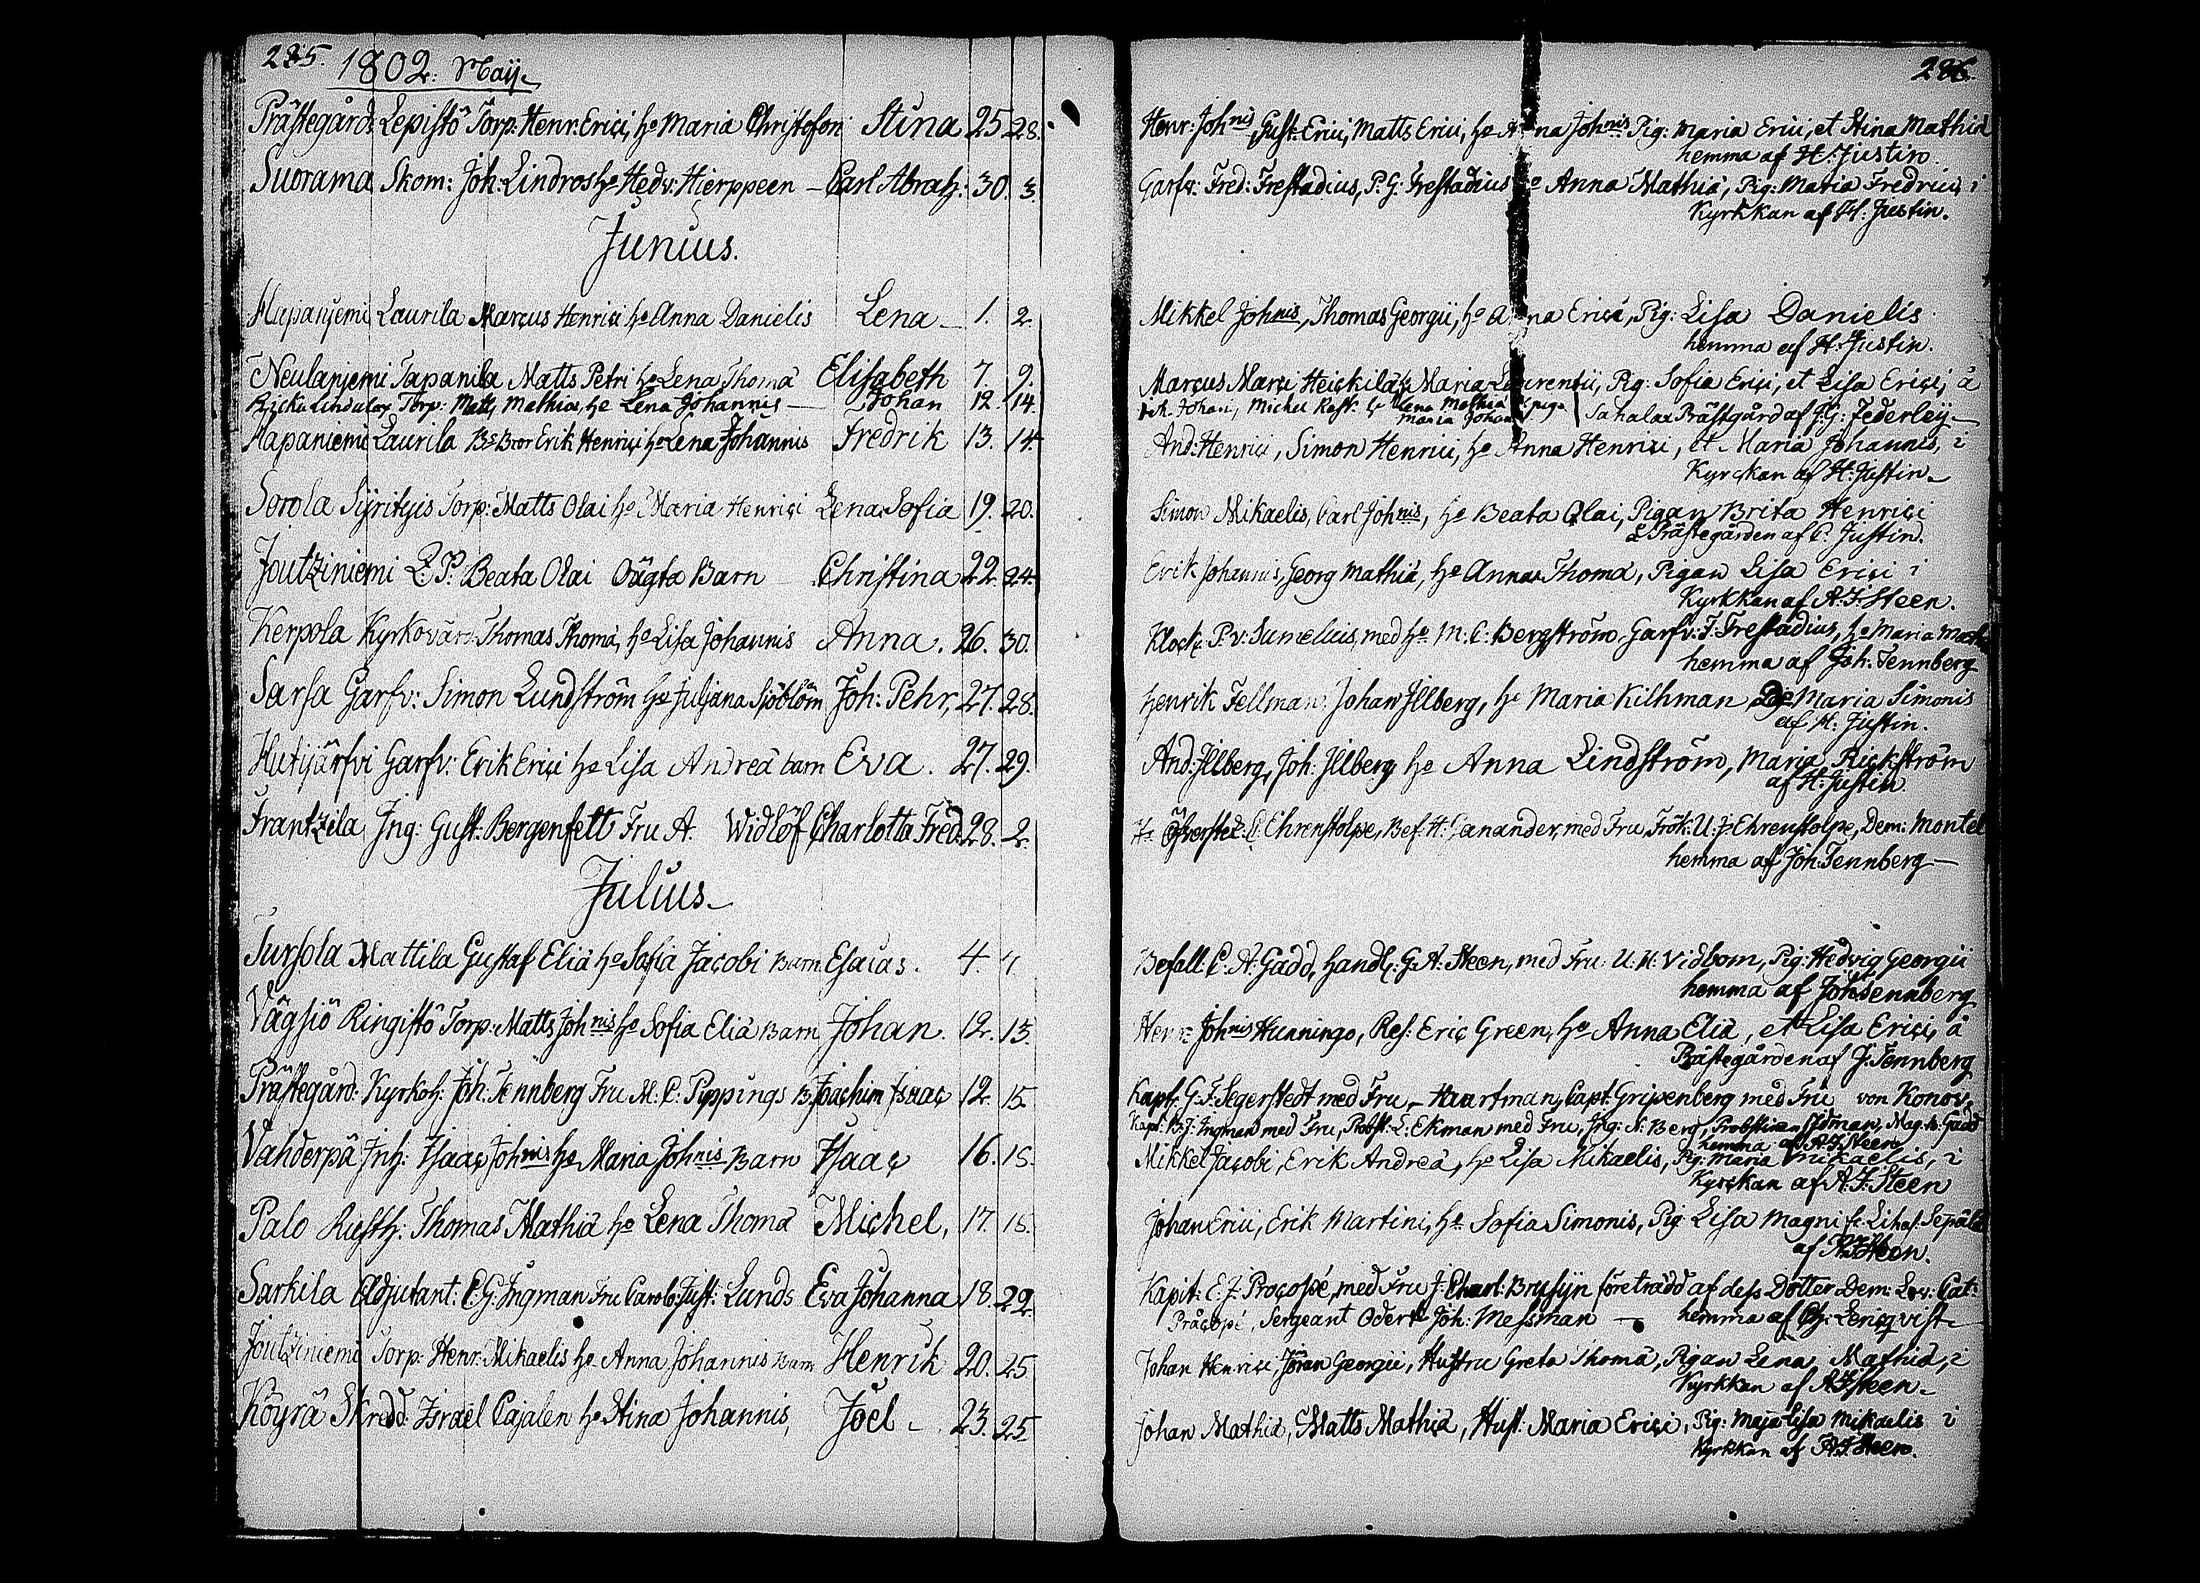 285. 1802. Maij.
Prästegårds Lepistö Torp: Henr: Erici, he Maria Christofori Stina 25. 28.
Suorama Skom: Joh: Lindros he Hedv: Hierppeen – Carl Abrah: 30. 3.
Junius.
Hapaniemi Laurila Marcus Henrici he Anna Danielis Lena – 1. 2.
Neulaniemi Tapanila Matts Petri he Lena Thomæ Elisabeth 7. 9.
Torp: Matts Mathiæ, he Lena Johannis – Johan 12. 14.
Hapaniemi Laurila Bs Bror Erik Henrici he Lena Johannis Fredrik 13. 14.
Sorola Torp: Matts Olai he Maria Henrici Lena Sofia 19. 20.
Joutziniemi Beata Olai Oägta Barn – Christina 22. 24.
Kerpola Kyrkovärd Thomas Thomæ, he Lisa Johannis Anna. 26. 30.
Sarsa Garfv: Simon Lundström he Juljana Sjöblöm Joh: Pehr, 27. 28.
Hutijärfvi Garfv: Erik Erici he Lisa Andreæ barn Eva. 27. 29.
Frantzila Ing: Gust: Bergenfelt Fru A. Widlöf Charlotta Fred. 28. 2.
Julius.
Sursola Mattila Gustaf Eliæ he Sofia Jacobi Barn Esaias. 4.
Vägsiö Ringistö Torp: Matts Johnis he Sofia Eliæ Barn Johan. 12. 13.
Prästegård: Kyrkoh: Joh: Tennberg Fru M: C: Pippings B. Joachim Isaac 12. 15.
Vahderpä Inh: Isaac Johnis he Maria Johnis Barn Isaac 16. 18.
Palo Rusth: Thomas Mathiæ he Lena Thomæ Michel, 17. 18.
Sarkila Adjutant: C: G: Ingman Fru Carol: Just: Lunds Eva Johanna 18. 22.
Joutziniemi Torp: Henr: Mikaelis he Anna Johannis Barn Henrik 20. 25
Köyrä Skredd: Israel Cajalen he Stina Johannis, Joel – 23. 25
286.
Henr: Johnis, Gust: Erici, Matts Erici, he Anna Johnis Pig: Maria Erici, et Stina Mathiæ
hemma af H: Justin.
Garfv: Fred: Frestadius, P: G: Frestadius he Anna Mathiæ, Pig: Maria Fredrici, i
Kyrkkan af H: Justin.
Mikkel Johnis, Thomas Georgii, he Anna Ericæ, Pig: Lisa Danielis
hemma af H: Justin.
Marcus Marci Heickilä he Maria Laurentii, Pig: Sofia Erici, et Lisa Erici, å
Johan, Michel he Lena Mathiæ pig: Maria Johan Sahalax Prästgård af J: G: Federleij –
And: Henrici, Simon Henrici, he Anna Henrici, et Maria Johannis, i
Kyrckan af H: Justin –
Simon Mikaelis, Carl Johnis, he Beata Olai, Pigan Brita Henrici
Prästegården af C. Justin.
Erik Johannis, Georg Mathiæ, he Anna Thomæ, Pigan Lisa Erici i
Kyrkkan af A. F: Steen.
Klock: P. v: Sumelius, med he M: C: Bergström, Garfv: F: Frestadius, he Maria
hemma af Joh: Tennberg
Henrik Fellman, Johan Illberg, he Maria Kilhman Maria Simonis
af H. Justin.
And: Illberg, Joh: Illberg he Anna Lindström, Maria Rickström
af H: Justin.
Hr Öfverstel. C Ehrenstolpe, Bef: H: Ganander, med Fru, Frök: U. Ehrenstolpe, Dem: Montel
hemma af Joh: Tennberg –
Befall: C: A: Gadd, Handl: G: A: Steen, med Fru U: U: Vidbom, Pig: Hedvig Georgii
hemma af Joh Tennberg
Henr: Johnis Hunningo, Res: Eric Green, he Anna Eliæ, et Lisa Erici, å
Prästegården af J. Tennberg
Kapt: G: F: Segerstedt med Fru – Haartman, Capt: Gripenberg med Fru von Konow,
Kapt: B: J: Ingman med Fru, Probst: L: Ekman med Fru, Ing: N: Berg, Probstinn Idman, Mag: Gadd
hemma af A. F. Steen
Mikkel Jacobi, Erik Andreæ, he Lisa Mikaelis, Pig: Maria Mikaelis, i
Kyrckan af A: F: Steen
Johan Erici, Erik Martini, he Sofia Simonis, Pig: Lisa Magni
af A. F. Steen.
Kapit: E: J: Procopé, med Fru J: Charl: Brusijn företrädd af dess Dotter Dem: Lov: Cat:
Pråcopé, Sergeant Odert Joh: Messman – hemma af Ch: Lencqvist –
Johan Henrici, Jöran Georgii, Hustru Greta Thomæ, Pigan Lena Mathiæ, i
Kyrkkan af A. F. Steen –
Johan Mathiæ, Matts Mathiæ, Hust: Maria Erici, Pig: Maja Lisa Mikaelis i
Kyrkkan af A. F. Steen.